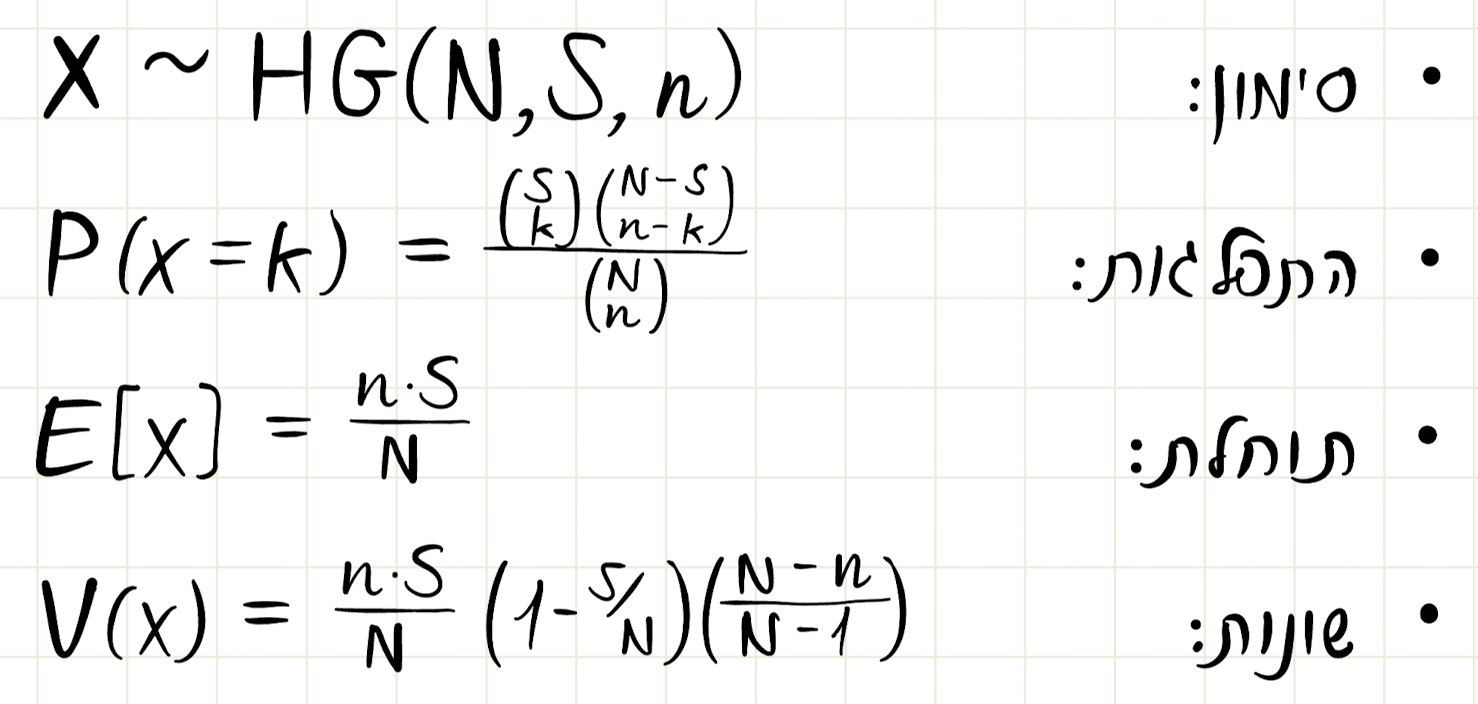 • סימון: X ~ HG(N,S,n)
• התפלגות: P(x=k) = \frac{\binom{S}{k}\binom{N-S}{n-k}}{\binom{N}{n}}
• תוחלת: E[x] = \frac{n·S}{N}
• שונות: V(x) = \frac{n·S}{N} (1-S/N)(\frac{N-n}{N-1})